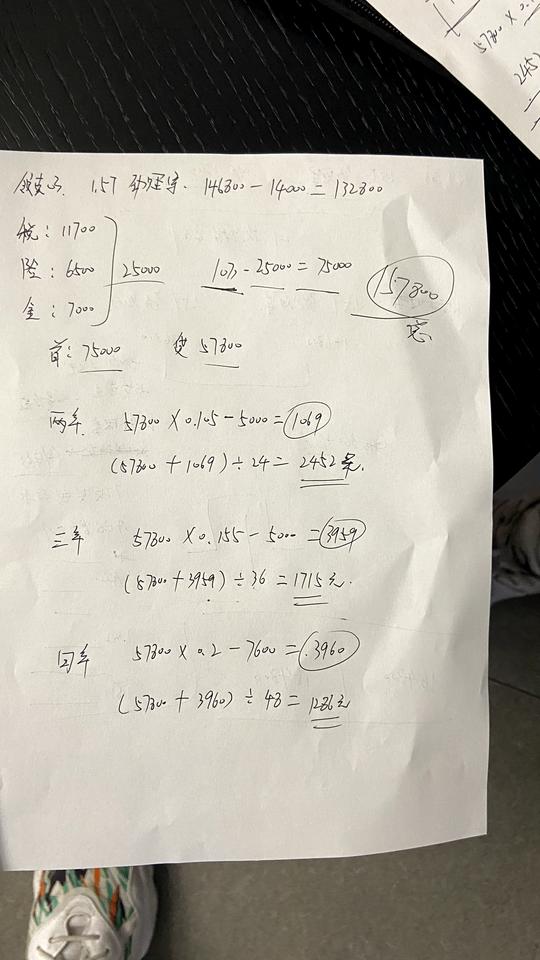 领克03 1.5T 劲擎享. 146800 - 14000 = 132800
税: 11700
险: 6500 25000 10万 - 25000 = 75000 157800
金: 7000 总
首: 75000 贷 57800
两年 57800 × 0.105 - 5000 = 1069
(57800 + 1069) ÷ 24 = 2452元.
三年 57800 × 0.155 - 5000 = 3959
(57800 + 3959) ÷ 36 = 1715元.
四年 57800 × 0.2 - 7600 = 3960
(57800 + 3960) ÷ 48 = 1286元
57800 × 0.
2452